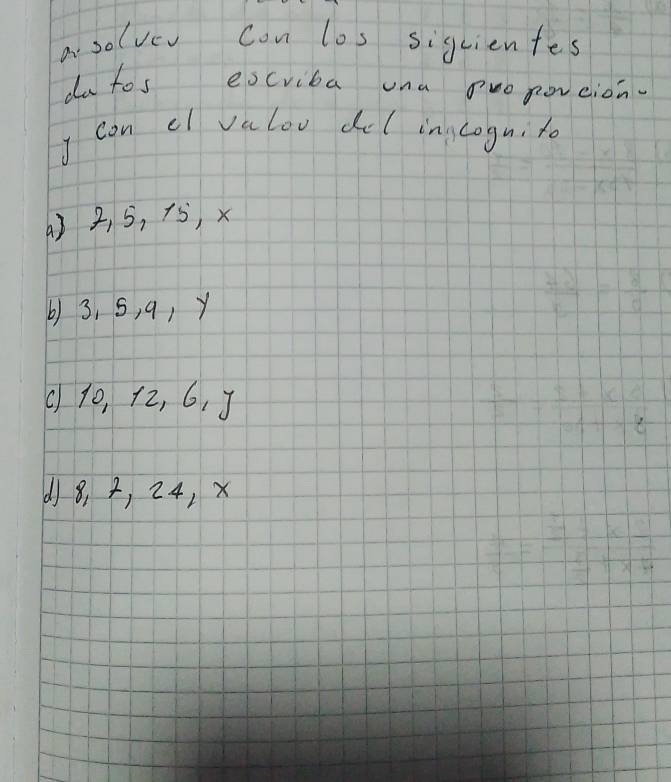 resolver con los siguientes
datos escriba una proporción
y con el valor del incognito
a) 7, 5, 15, x
b) 3, 5, 9, y
c) 10, 12, 6, y
d) 8, 7, 24, x